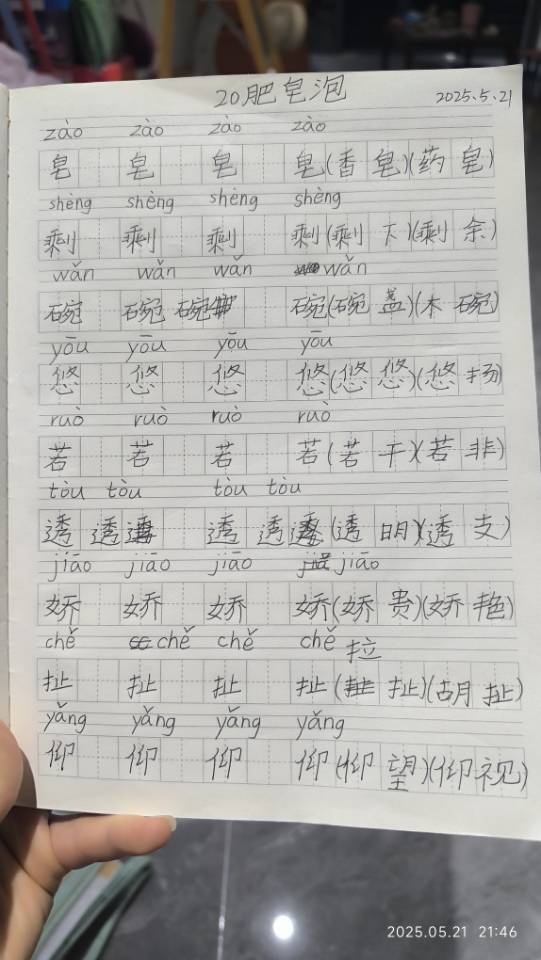 20肥皂泡 2025.5.21
zào zào zào zào
皂 皂 皂 皂(香皂)(药皂)
shèng shèng shèng shèng
剩 剩 剩 剩(剩下)(剩余)
wǎn wǎn wǎn wǎn
碗 碗 碗 碗(碗盖)(木碗)
yōu yōu yōu yōu
悠 悠 悠 悠(悠悠)(悠扬)
ruò ruò ruò ruò
若 若 若 若(若干)(若非)
tòu tòu tòu tòu
透 透 透 透 (透明)(透支)
jiāo jiāo jiāo jiāo
娇 娇 娇 娇(娇贵)(娇艳)
chě chě chě chě 拉
扯 扯 扯 扯(扯)(胡扯)
yǎng yǎng yǎng yǎng
仰 仰 仰 仰(仰望)(仰视)
2025.05.21 21:46